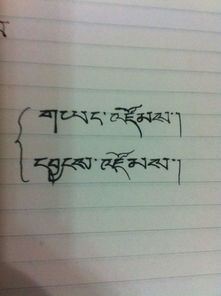 གཡང་འཛོམས་།
དབྱངས་འཛོམས་།